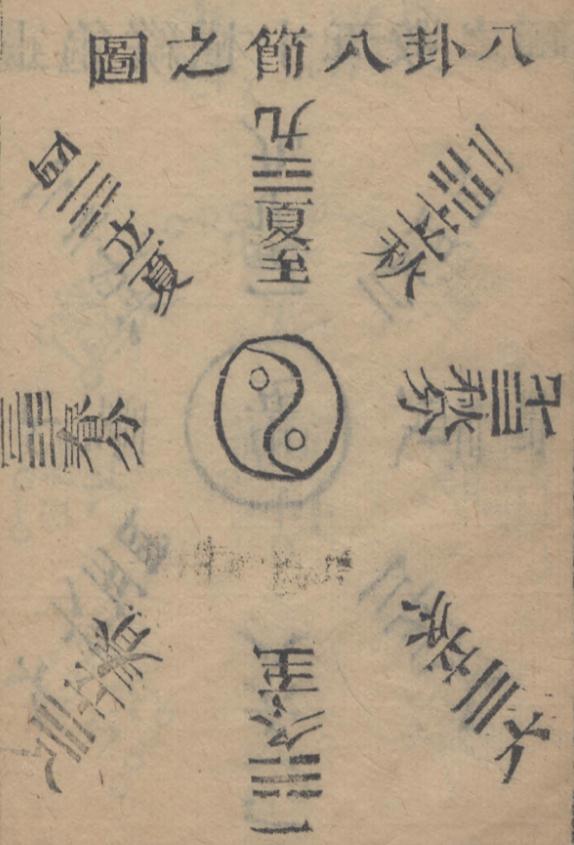 八卦八節之圖
九夏至
二立秋
七秋分
六立冬
一冬至
八立春
三春分
四立夏